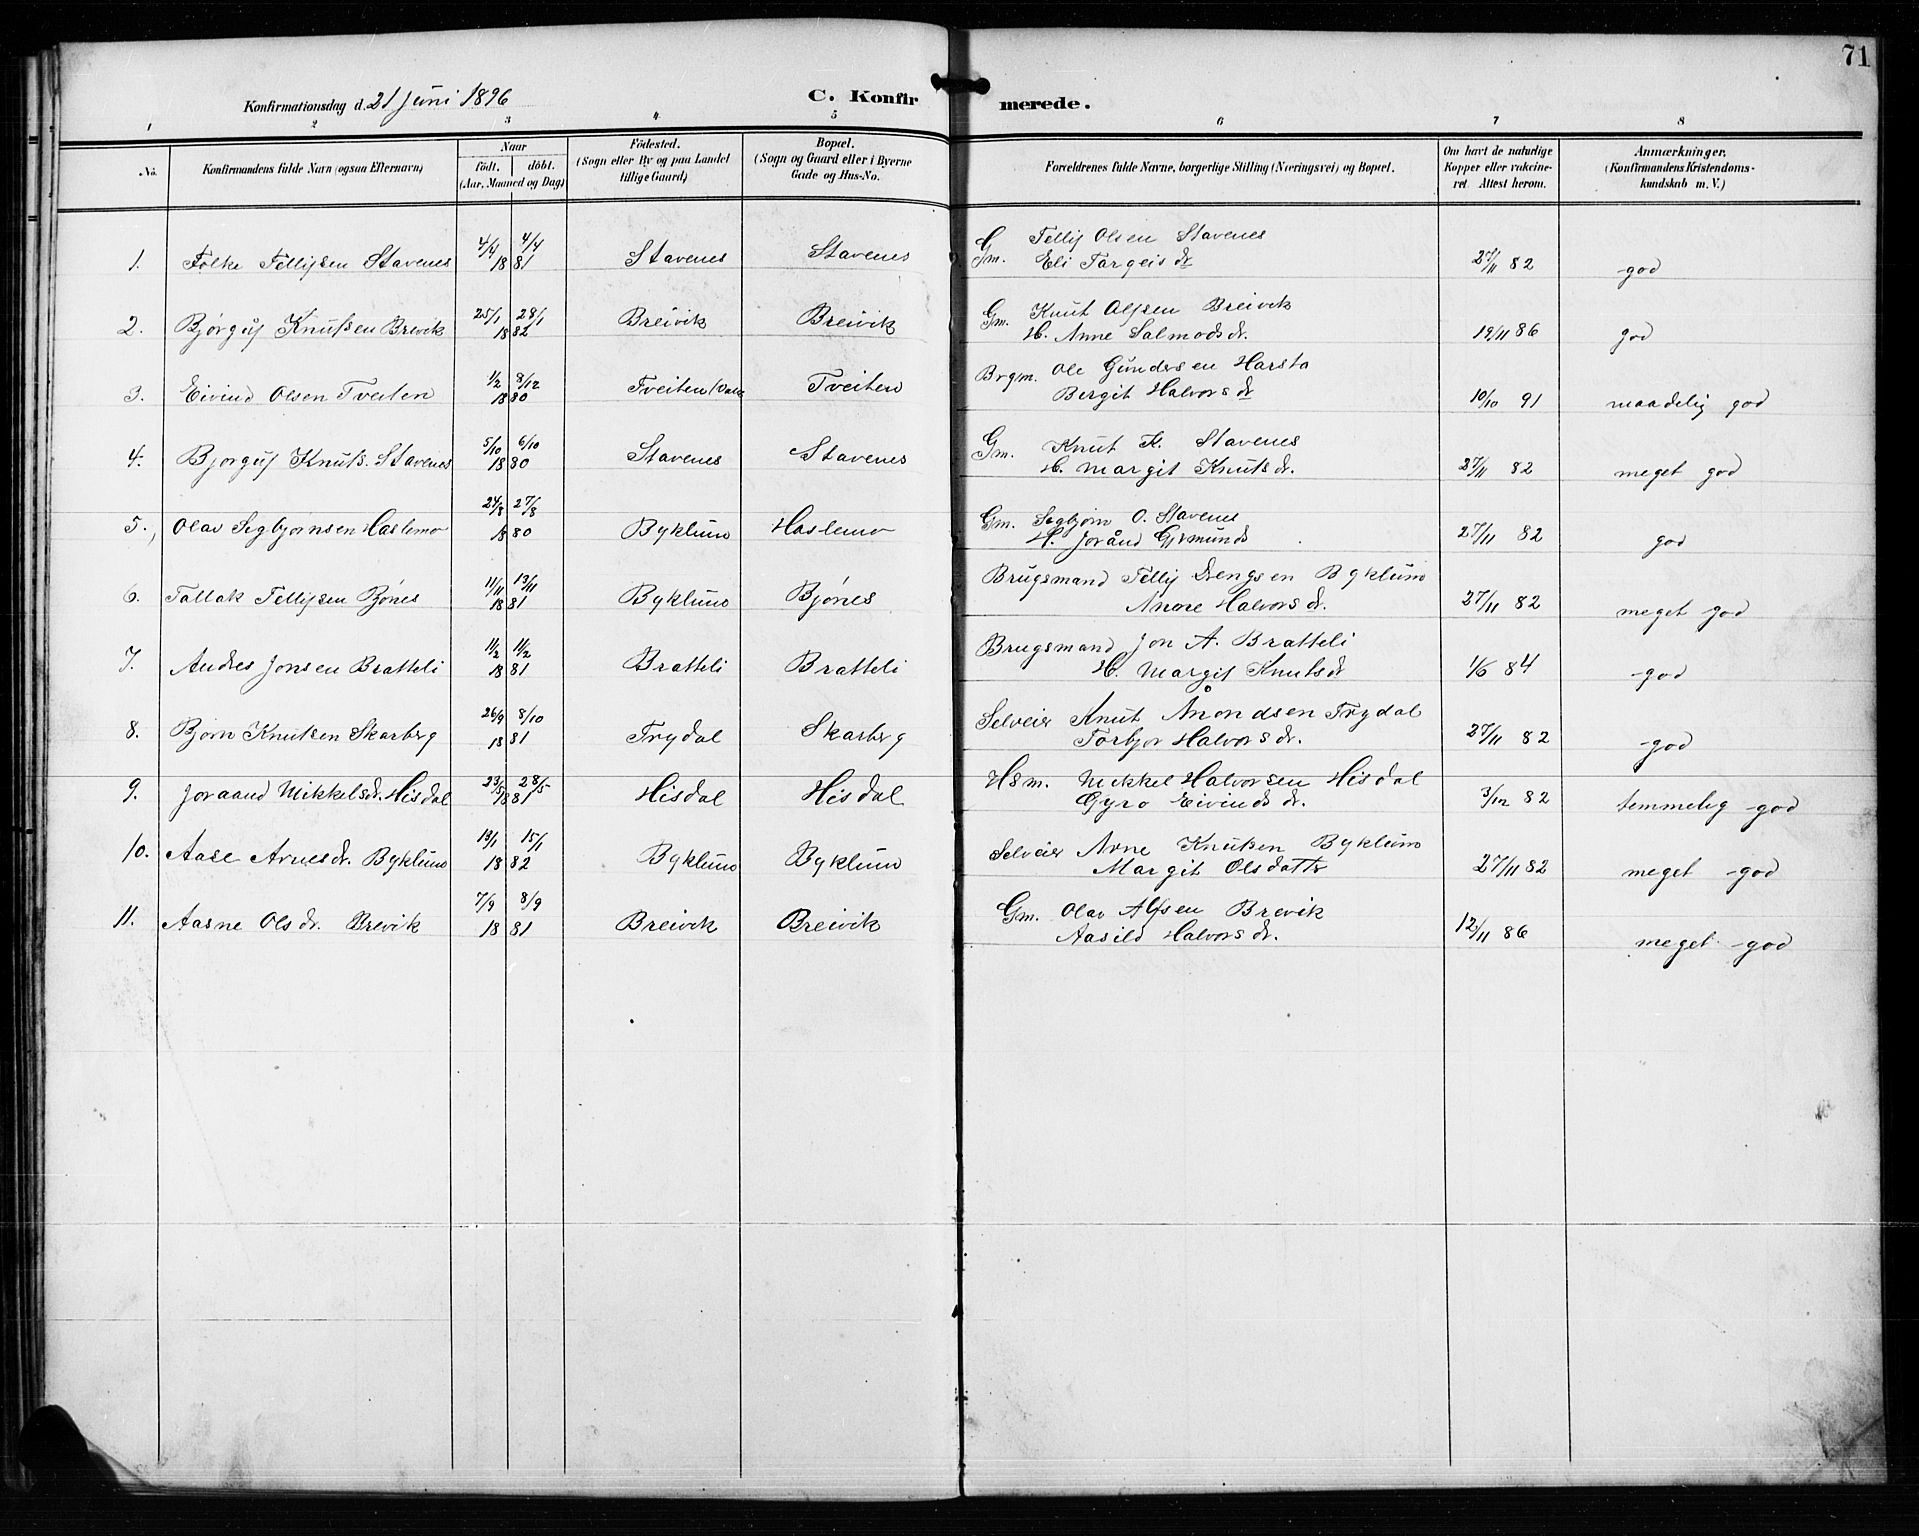 71
Konfirmationsdag d. 21 Juni 1896
C. Konfirmerede.
1 2 3 4 5 6 7 8
No. Konfirmandens fulde Navn (ogsaa Efternavn) Naar födt. döbt. (Aar, Maaned og Dag) Födested. (Sogn eller By og paa Landet tillige Gaard) Bopæl. (Sogn og Gaard eller i Byerne Gade og Hus-No. Forældrenes fulde Navne, borgerlige Stilling (Næringsvei) og Bopæl. Om havt de naturlige Kopper eller vakcineret. Attest herom. Anmærkninger. (Konfirmandens Kristendomskundskab m. V.)
1. Folke Tellefsen Stavenes 4/4 4/4 1881 Stavenes Stavenes Gm. Tellef Olsen Stavenes
Gm. Eli Targeisdr 27/11 82 god
2. Bjørguf Knutsen Brevik 25/1 28/1 1882 Breivik Breivik Gm. Knut Olsen Breivik
H. Anne Salmodsdr. 12/11 86 god
3. Eivind Olsen Tveiten 1/2 8/12 1880 Tveiten Tveiten Brgm. Ole Gundersen Harsta
Bergit Halvorsdr 10/10 91 maadelig god
4. Bjørguf Knuts. Stavenes 5/10 6/10 1880 Stavenes Stavenes Gm. Knut K. Stavenes
H. Margit Knutsdr. 27/11 82 meget god
5. Olav Segbjørnsen Haslemo 24/8 27/8 1880 Byklum Haslemo Gm. Segbjørn O. Stavenes
H. Jorånd Gjermunds 27/11 82 god
6. Tallak Tellefsen Bjønes 11/11 13/11 1881 Byklum Bjønes Brugsmand Tellef Drengsen Byklum
Anne Halvorsdr. 27/11 82 meget god
7. Andres Jonsen Bratteli 11/2 11/2 1881 Bratteli Bratteli Brugsmand Jon A. Bratteli
H. Margit Knutsdr 1/6 84 god
8. Bjørn Knutsen Skarberg 26/9 8/10 1881 Trydal Skarberg Selveier Knut Ånondsen Trydal
Torbjør Halvorsdr. 27/11 82 god
9. Joraand Mikkelsdr. Hisdal 23/5 28/5 1881 Hisdal Hisdal Hsm. Mikkel Halvorsen Hisdal
Gyro Eivindsdr. 3/12 82 temmelig god
10. Aase Arnesdr. Byklum 13/1 15/1 1882 Byklum Byklum Selveier Arne Knutsen Byklum
Margit Olsdattr 27/11 82 meget god
11. Aasne Olsdr. Breivik 7/9 8/9 1881 Breivik Breivik Gm. Olav Alfsen Brevik
Aasild Halvorsdr. 12/11 86 meget god